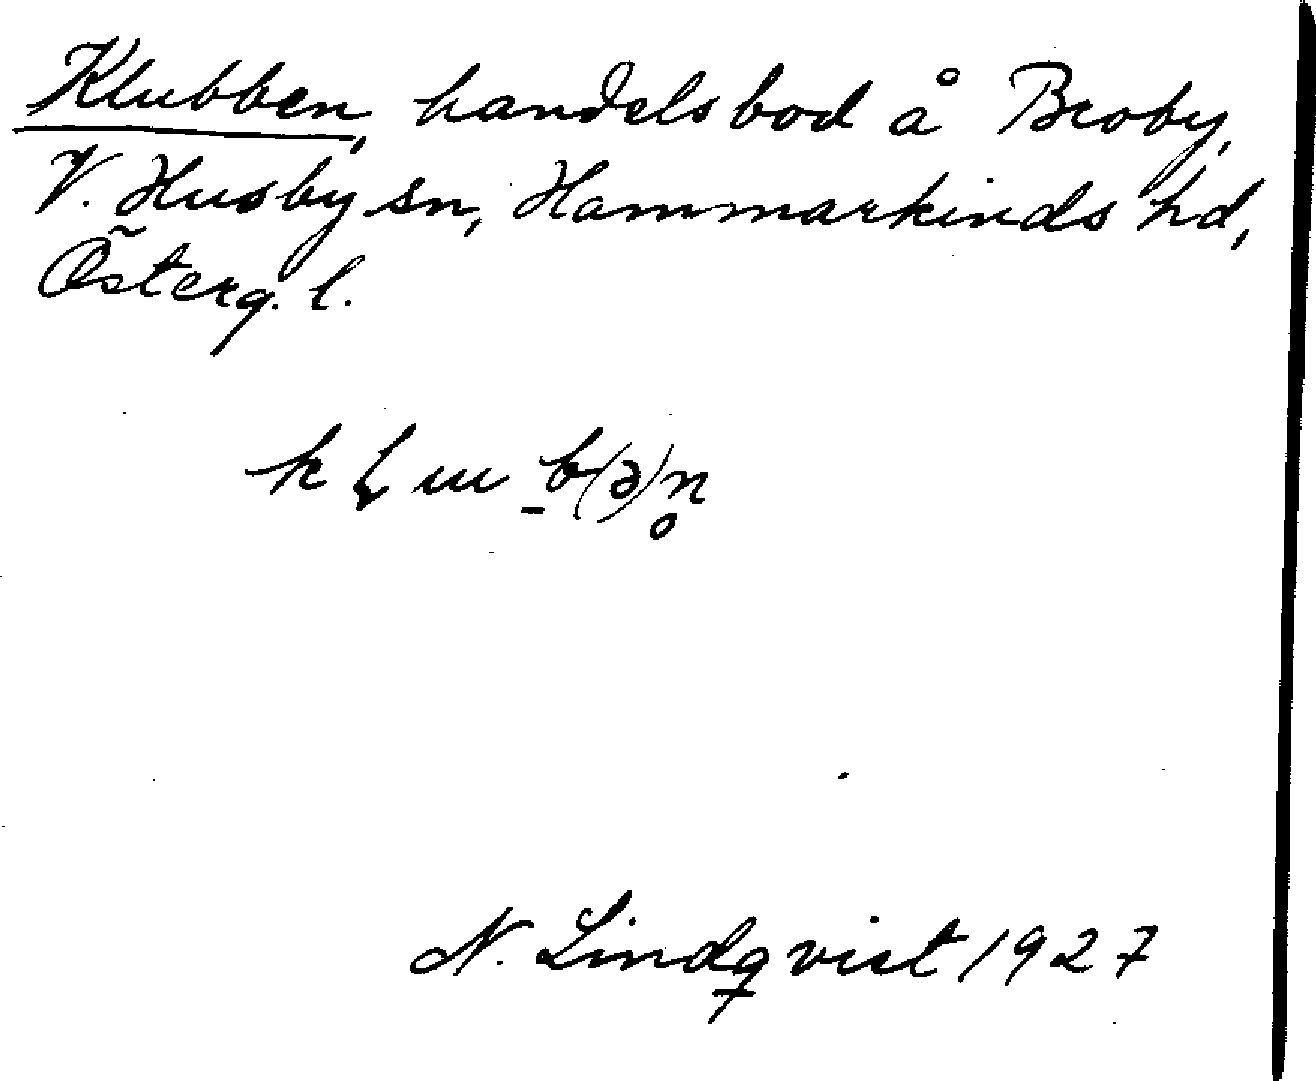 Klubben, handelsbod å Broby,
V. Husby sn, Hammarkinds hd,
Österg. l.
N. Lindqvist 1927